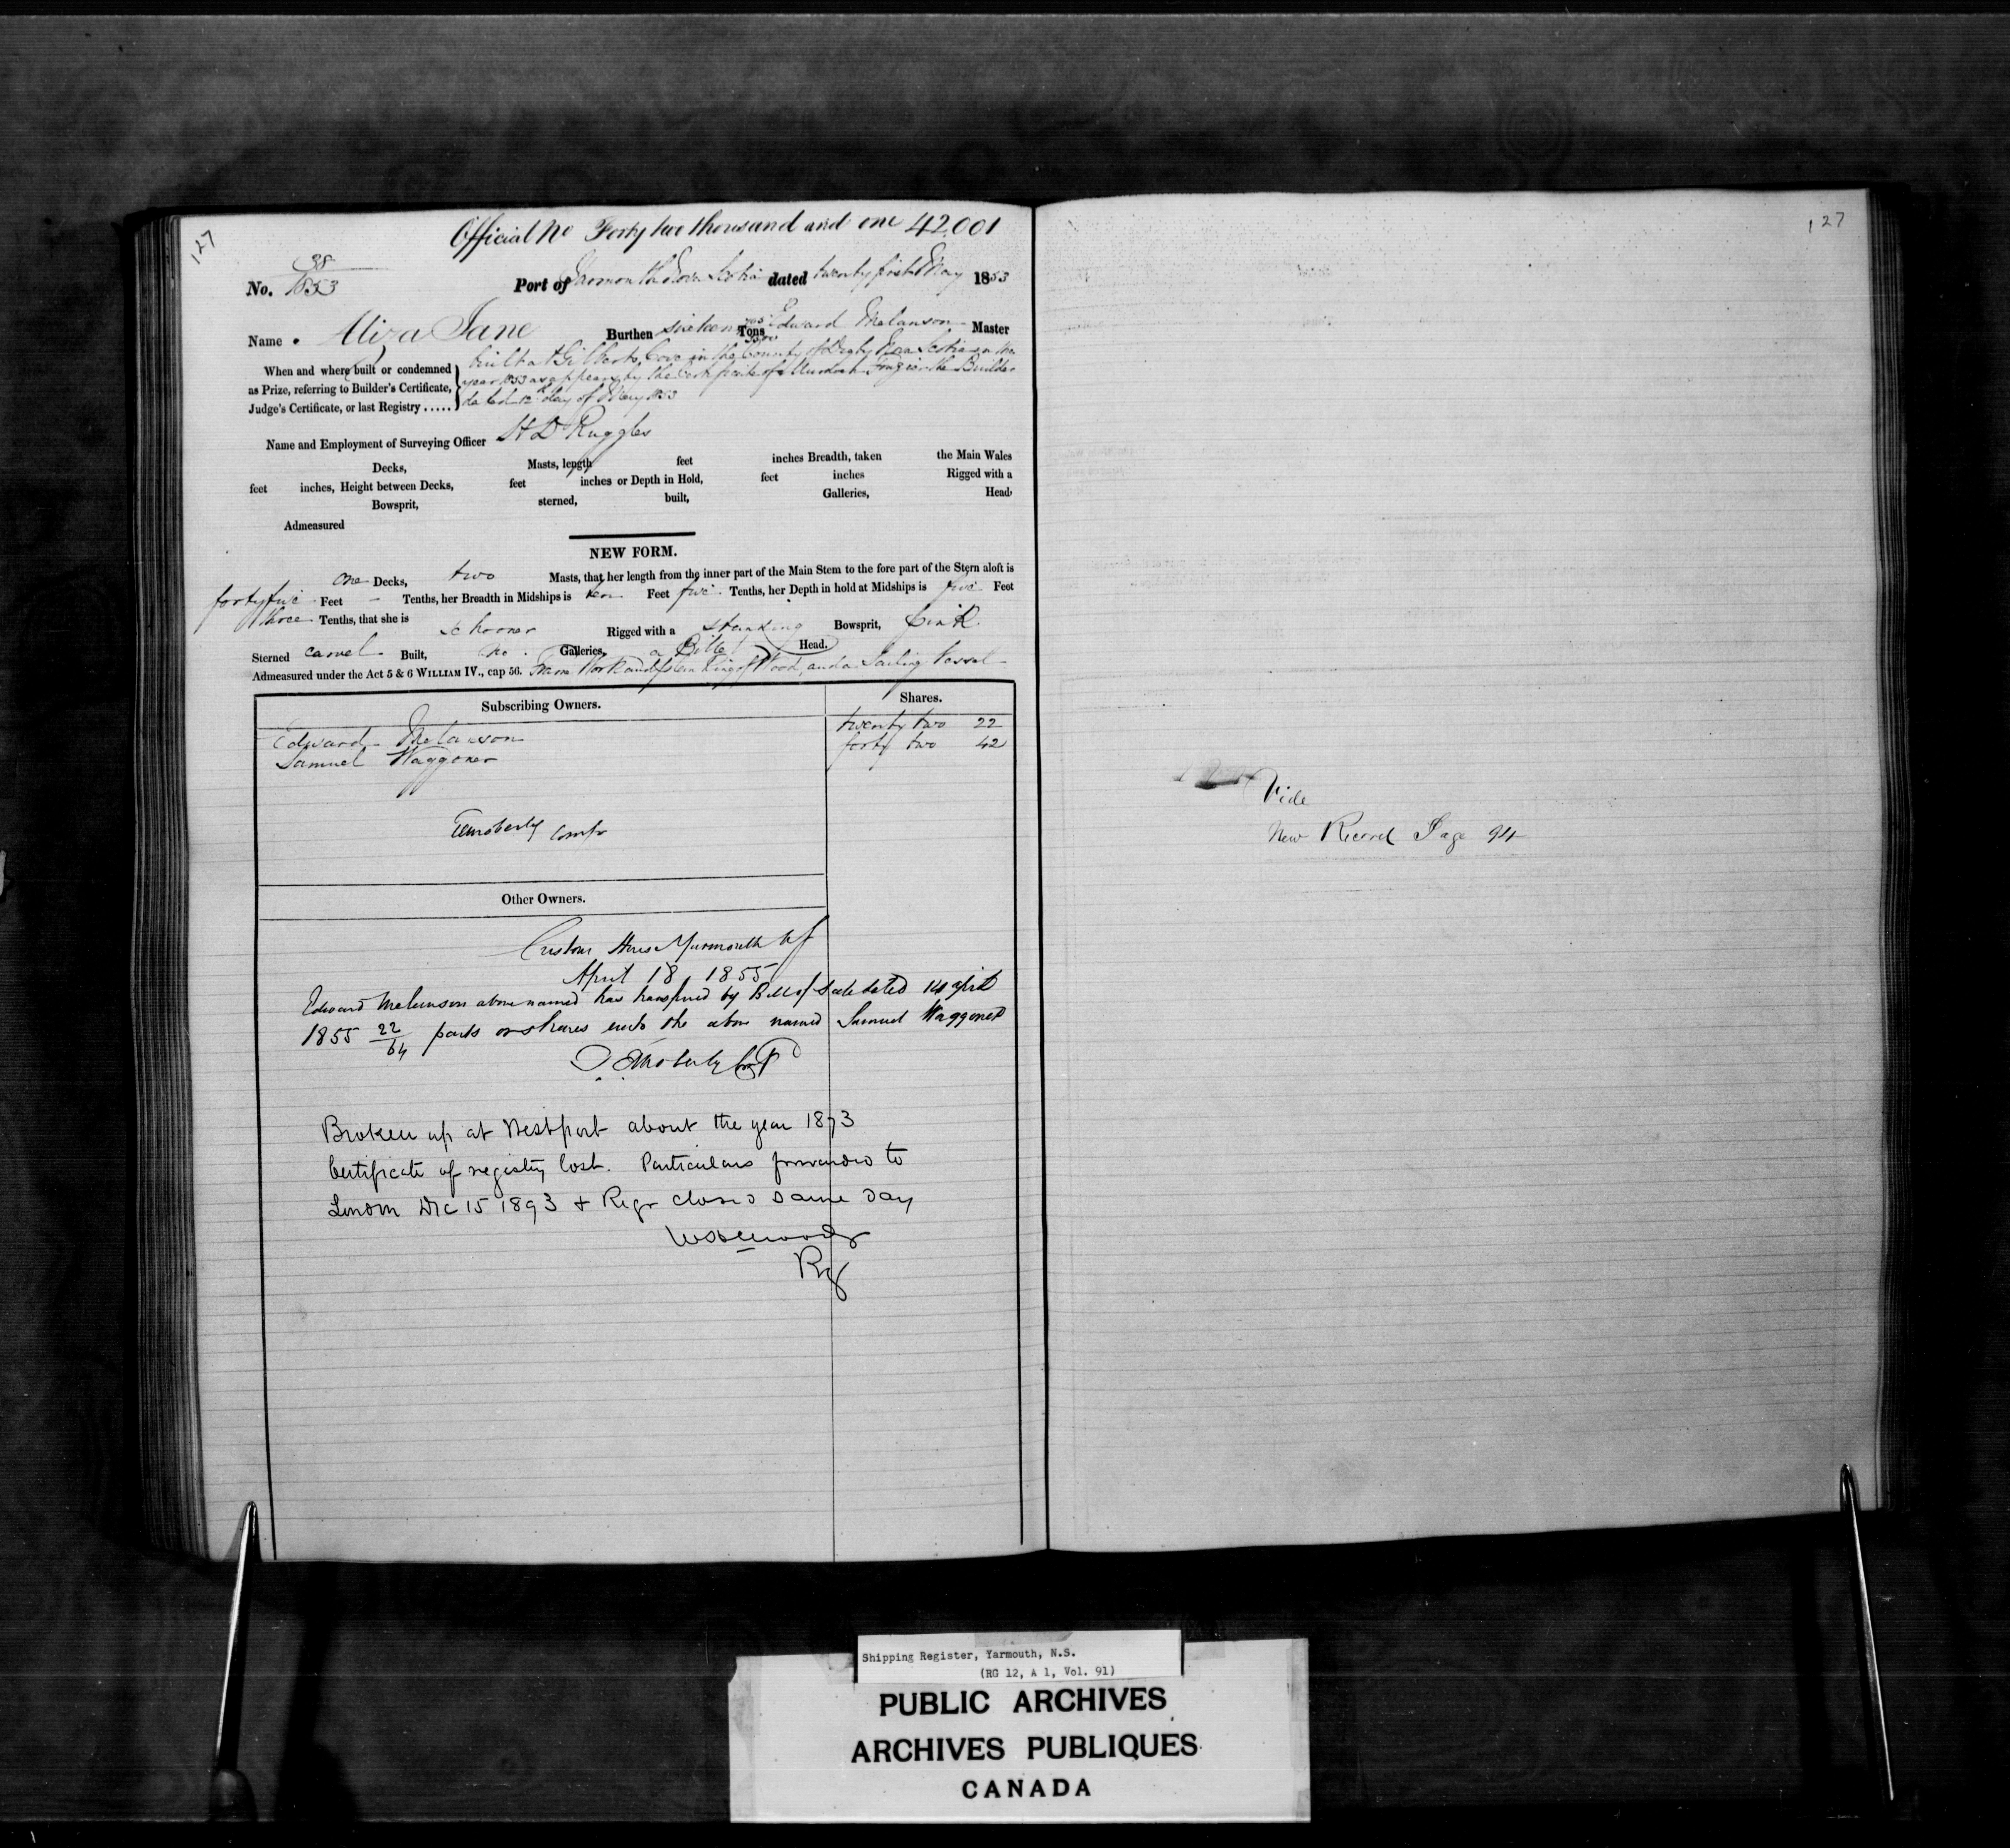 127
Official No Forty two thousand and one 42.001
No. 38/1853 Port of Yarmouth Nova Scotia dated twenty first May 1853
Name . Aliza Jane Burthen sixteen Tons Edward Melanson Master
When and where built or condemned
as Prize, referring to Builder's Certificate,
Judge's Certificate, or last Registry .....
built at Gilberts Cove in the County of Digby Nova Scotia in the
year 1853 as appears by the Certificate of the Builder
dated 12th day of May 1853
Name and Employment of Surveying Officer H D Ruggles
Decks, Masts, length feet inches Breadth, taken the Main Wales
feet inches, Height between Decks, feet inches or Depth in Hold, feet inches Rigged with a
Bowsprit, sterned, built, Galleries, Head,
Admeasured
NEW FORM.
one Decks, two Masts, that her length from the inner part of the Main Stem to the fore part of the Stern aloft is
forty five Feet - Tenths, her Breadth in Midships is ten Feet five Tenths, her Depth in hold at Midships is five Feet
three Tenths, that she is Schooner Rigged with a standing Bowsprit, pink
Sterned carvel Built, no Galleries, a Billet Head.
Admeasured under the Act 5 & 6 WILLIAM IV., cap 56. Frame Work and planking of Wood, and a Sailing Vessel
Subscribing Owners. Shares.
Edward Melanson twenty two 22
Samuel Waggoner forty two 42
Moberly Compr
Other Owners.
Custom House Yarmouth NS
April 18 1855
Edward Melanson above named has transferred by Bill of Sale dated 14 april
1855 22/64 parts or shares unto the above named Samuel Waggoner
Moberly
Broken up at Westport about the year 1873
Certificate of registry lost. Particulars forwarded to
London Dec 15 1893 & Regr closed same day
Rg
127
Vide
New Record Page 94
Shipping Register, Yarmouth, N.S.
(RG 12, A 1, Vol. 91)
PUBLIC ARCHIVES
ARCHIVES PUBLIQUES
CANADA